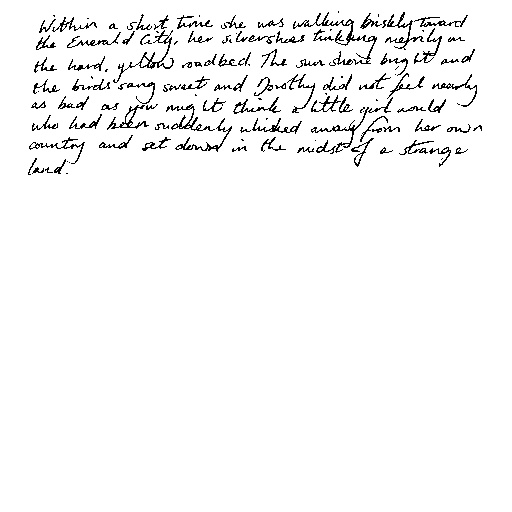 Within a short time she was walking briskly toward
the Emerald City, her silver shoes tinkling merrily on
the hard, yellow roadbed. The sun shone bright and
the birds sang sweet and Dorothy did not feel nearly
as bad as you might think a little girl would
who had been suddenly whisked away from her own
country and set down in the midst of a strange
land.